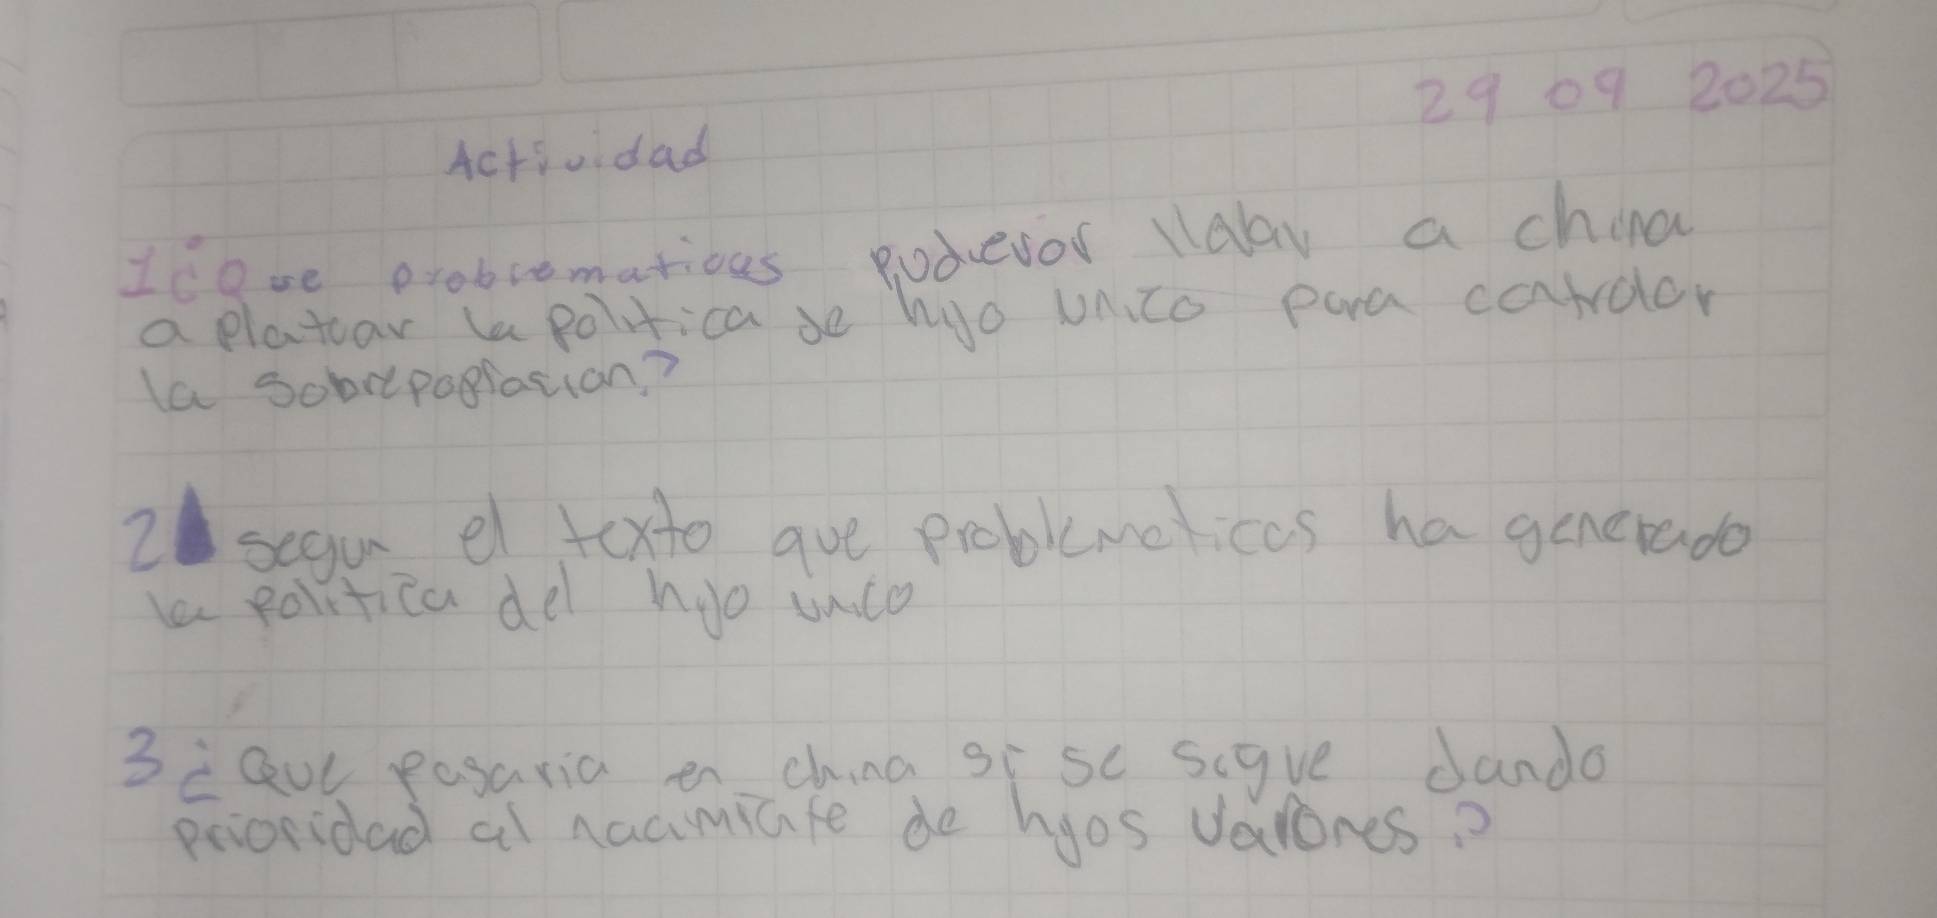 29 09 2025
Actividad
1 ¿Que problematicas pudieror llabar a china
a plantear la politica de hijo unico para controlar
la sobrepoplasian?
2 segun el texto que problematicas ha generado
la politica del hijo unico
3 ¿Que pasaria en china si se sigue dando
prioridad al nacimiente de hijos varones?